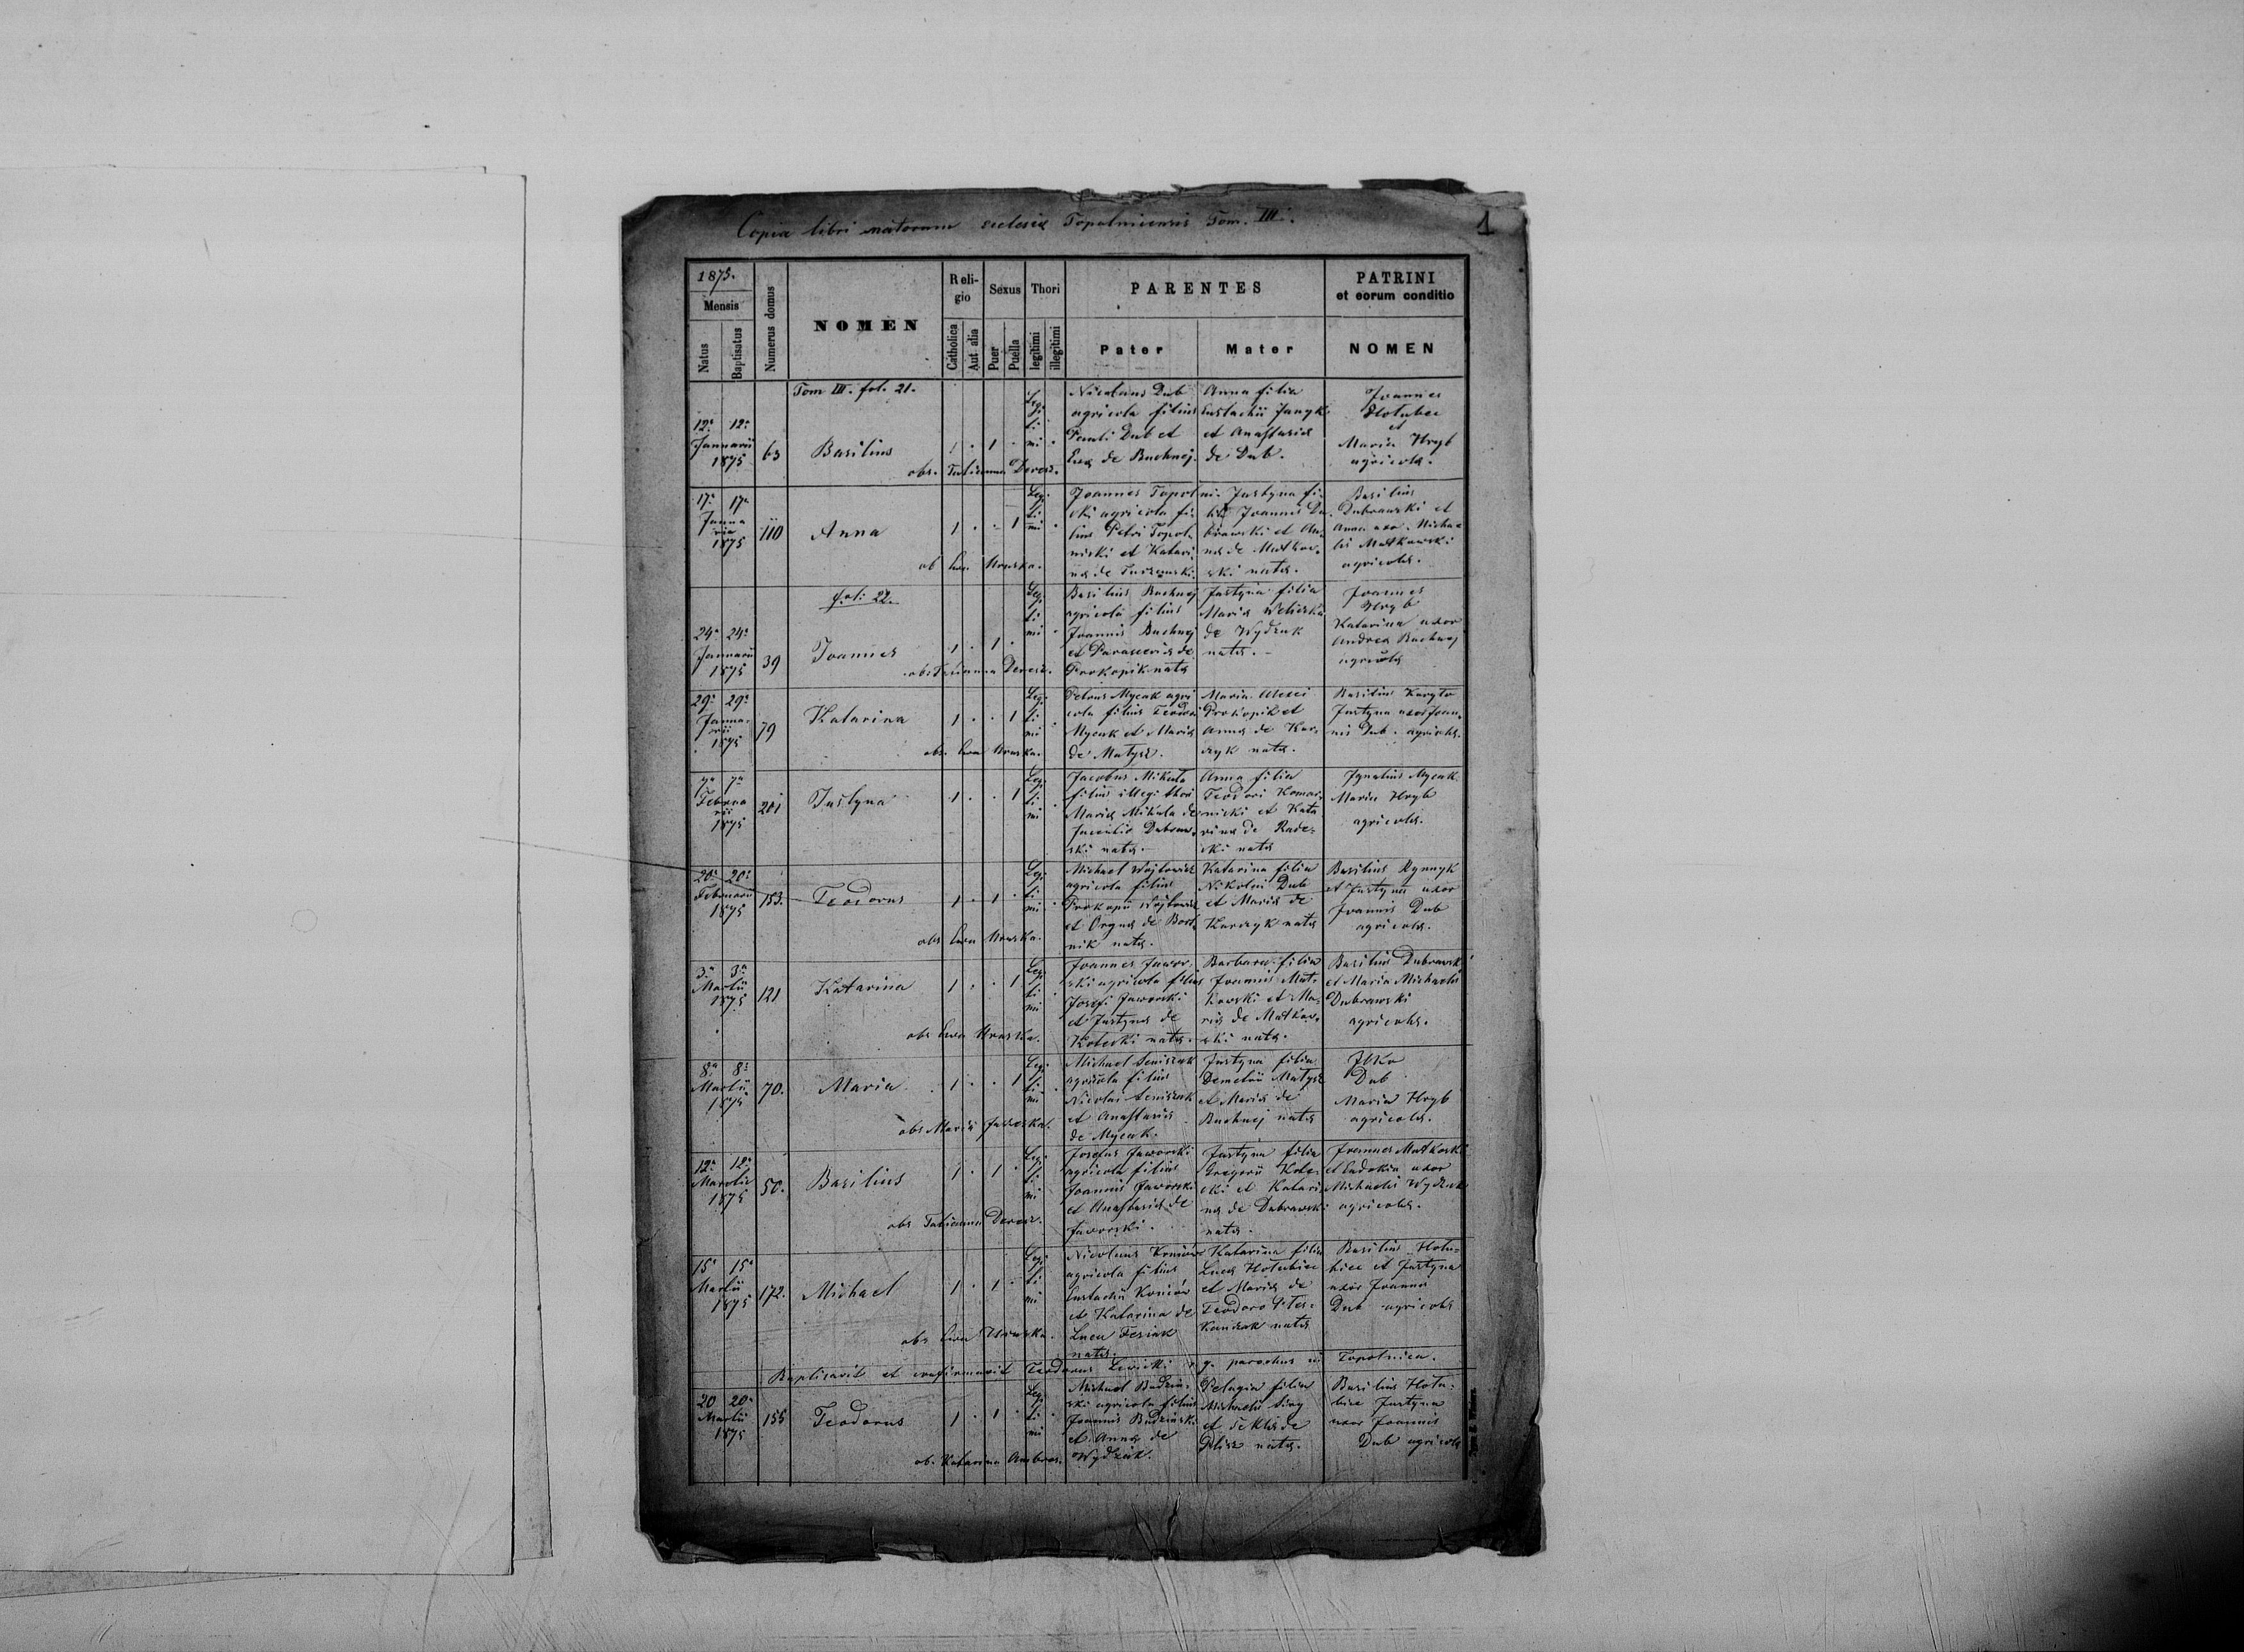 Copia libri natorum ecclesiæ Topolnicensis Tom. III.
1
1875.
Mensis
Natus
Baptisatus
Numerus domus
NOMEN
Religio
Catholica
Aut. alia
Sexus
Puer
Puella
Thori
legitimi
illegitimi
PARENTES
Pater
Mater
PATRINI
et eorum conditio
NOMEN
Tom III. fol. 21.
12a 12a
Januarii
1875
63
Basilius
1 . 1 .
Legitimi
obs. Tatianna Deresz.
Nicolaus Dub
agricola filius
Pauli Dub et
Eva de Buchnej.
Anna filia
Eustachii Janyk
et Anastasia
de Dub.
Joannes
Hotubec
et
Maria Hryb
agricolæ.
17a 17a
Januaria
1875
110
Anna
1 . . 1
Legitimi
ob Eva Uruska.
Joannes Topolni-
cki agricola fi-
lius Petri Topol-
nicki et Katari-
na de
Justyna fi-
lia Joannis Du-
brawski et An-
na de Matkow-
ski nata.
Basilius
Dubrawski et
Anna uxor Micha-
lis Matkowski
agricolæ.
fol: 22.
24a 24a
Januarii
1875
39
Joannes
1 . 1 .
Legitimi
obs Tatianna Deresz.
Basilius Buchnej
agricola filius
Joannis Buchnej
et Parascevia de
Prokopik nata
Justyna filia
Maria
de Wydzuk
nata.
Joannes
Hryb
Katarina uxor
Andrea Buchnej
agricola
29a 29a
Januarii
1875
79
Katarina
1 . . 1
Legitimi
obs. Eva Uruska.
Petrus Mycak agri
cola filius Teodori
Mycak et Maria
de Matysz.
Maria Alexei
Prokopik et
Anna de Kar-
czyk nata.
Basilius Koryto
Justyna uxor Joan-
nis Dub. agricolæ.
7a 7a
Februarii
1875
201
Justyna
1 . . 1
Legitimi
Jacobus Mikuta
filius illegi thori
Maria Mikuta de
Dubraw-
ski nata.
Anna filia
Teodori Komar-
nicki et Kata
rina de Rade-
cki nata
Ignatius Mycak
Maria Hryb
agricolæ.
20a 20a
Februarii
1875
153.
Teodorus
1 . 1 .
Legitimi
obs Eva Uruska.
Michael Wojtowicz
agricola filius
Prokopii Wojtowicz
et Oryna de Bort-
nik nata.
Katarina filia
Nikolai Dub
et Maria de
Karczyk nata
Basilius Rynnyk
et Justyna uxor
Joannis Dub
agricolæ.
3a 3a
Martii
1875
121
Katarina
1 . . 1
Legitimi
obs Eva Uruska.
Joannes Jawor-
ski agricola filius
Josefi Jaworski
et Justyna de
Kotecki nata.
Barbara filia
Joannis Mat-
kowski et Ma-
ria de Matkow-
ski nata.
Basilius Dubrawski
et Maria Michaelis
Dubrawski
agricolæ.
8a 8a
Martii
1875
70.
Maria
1 . . 1
Legitimi
obs Maria
Michael Seniszak
agricola filius
Nicolai Seniszak
et Anastasia
de Mycak.
Justyna filia
Demetrii Matysz
et Maria de
Buchnej nata
Ilko
Dub
Maria Hryb
agricolæ.
12a 12a
Martii
1875
50.
Basilius
1 . 1 .
Legitimi
obs Tatianna Deresz.
Josefus Jaworski
agricola filius
Joannis Jaworski
et Anastasia de
Jaworski.
Justyna filia
Gregorii Kote-
cki et Katari-
na de Dubrawski
nata.
Joannes Matkoski
et Eudokia uxor
Michaelis Wydzuk
agricolæ.
15a 15a
Martii
1875
172.
Michael
1 . 1 .
Legitimi
obs Eva Uruska.
Nicolaus Koniów
agricola filius
Eustachii Koniów
et Katarina de
Luca Fesiak
nata.
Katarina filia
Luca Hotubiec
et Maria de
Teodoro
nata
Basilius Hotu-
biec et Justyna
uxor Joannis
Dub agricolæ
Baptisavit et confirmavit Teodorus Lewicki g. parochus in Topolnica.
20 20a
Martii
1875
155
Teodorus
1 . 1 .
Legitimi
ob. Katarina Ambros.
Michael Budzin-
ski agricola filius
Joannis Budzinski
et Anna de
Wydzuk.
Pelagia filia
Michaelis
et Tekla de
nata.
Basilius Hotu-
biec Justyna
uxor Joannis
Dub agricolæ